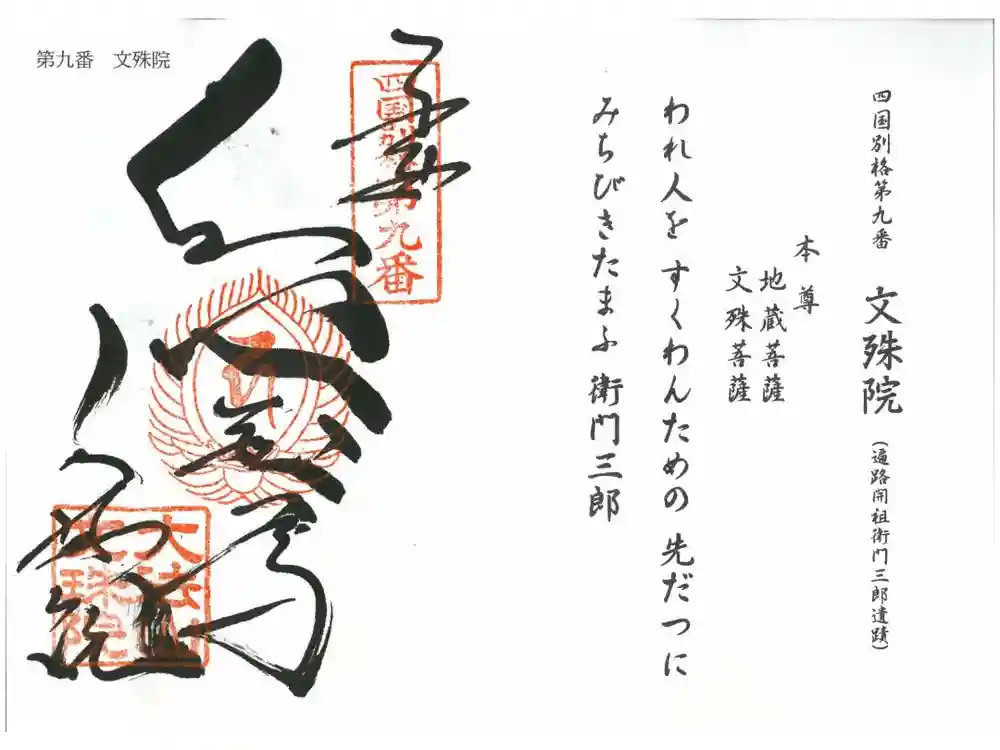 四国別格第九番 文殊院 (遍路開祖衛門三郎遺蹟)
本尊
地蔵菩薩
文殊菩薩
われ人を すくわんための 先だつに
みちびきたまふ 衛門三郎
第九番 文殊院
奉
四国別格第九番
文殊院
大法山
文殊院